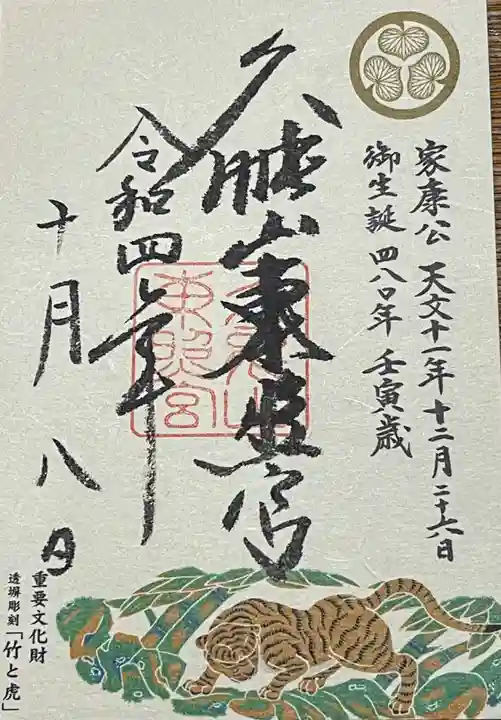 家康公 天文十一年 十二月二十六日
御生誕 四八〇年 壬寅歳
久能山東照宮
令和四年
十月八日
重要文化財
透塀彫刻「竹と虎」